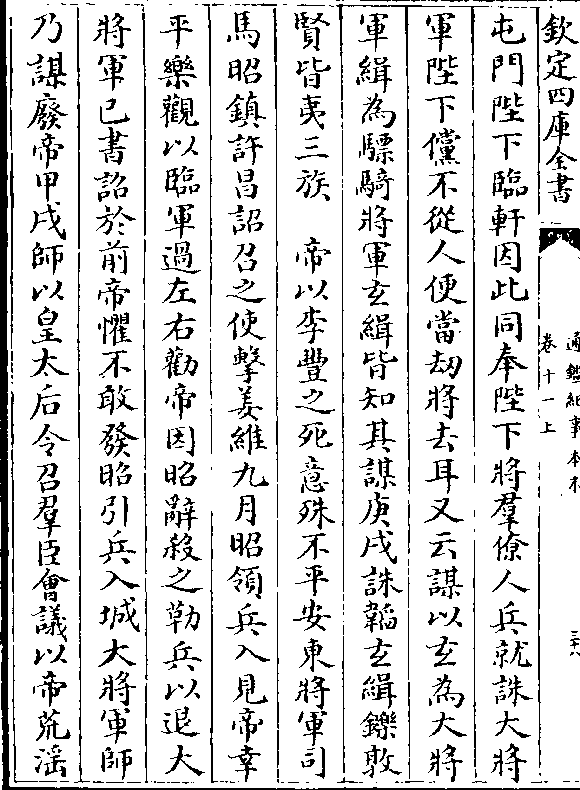 欽定四庫全書
通鑑紀事本末
卷十一上
三十六
屯門陛下臨軒因此同奉陛下將羣僚人兵就誅大將
軍陛下儻不從人便當刼將去耳又云謀以玄為大將
軍緝為驃騎將軍玄緝皆知其謀庚戌誅韜玄緝鑠敦
賢皆夷三族　帝以李豐之死意殊不平安東將軍司
馬昭鎮許昌詔召之使擊姜維九月昭領兵入見帝幸
平樂觀以臨軍過左右勸帝因昭辭殺之勒兵以退大
將軍已書詔於前帝懼不敢發昭引兵入城大將軍師
乃謀廢帝甲戌師以皇太后令召羣臣會議以帝荒淫